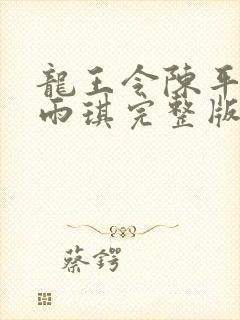 龍王令陳平
雨琪完整版
蔡鍔